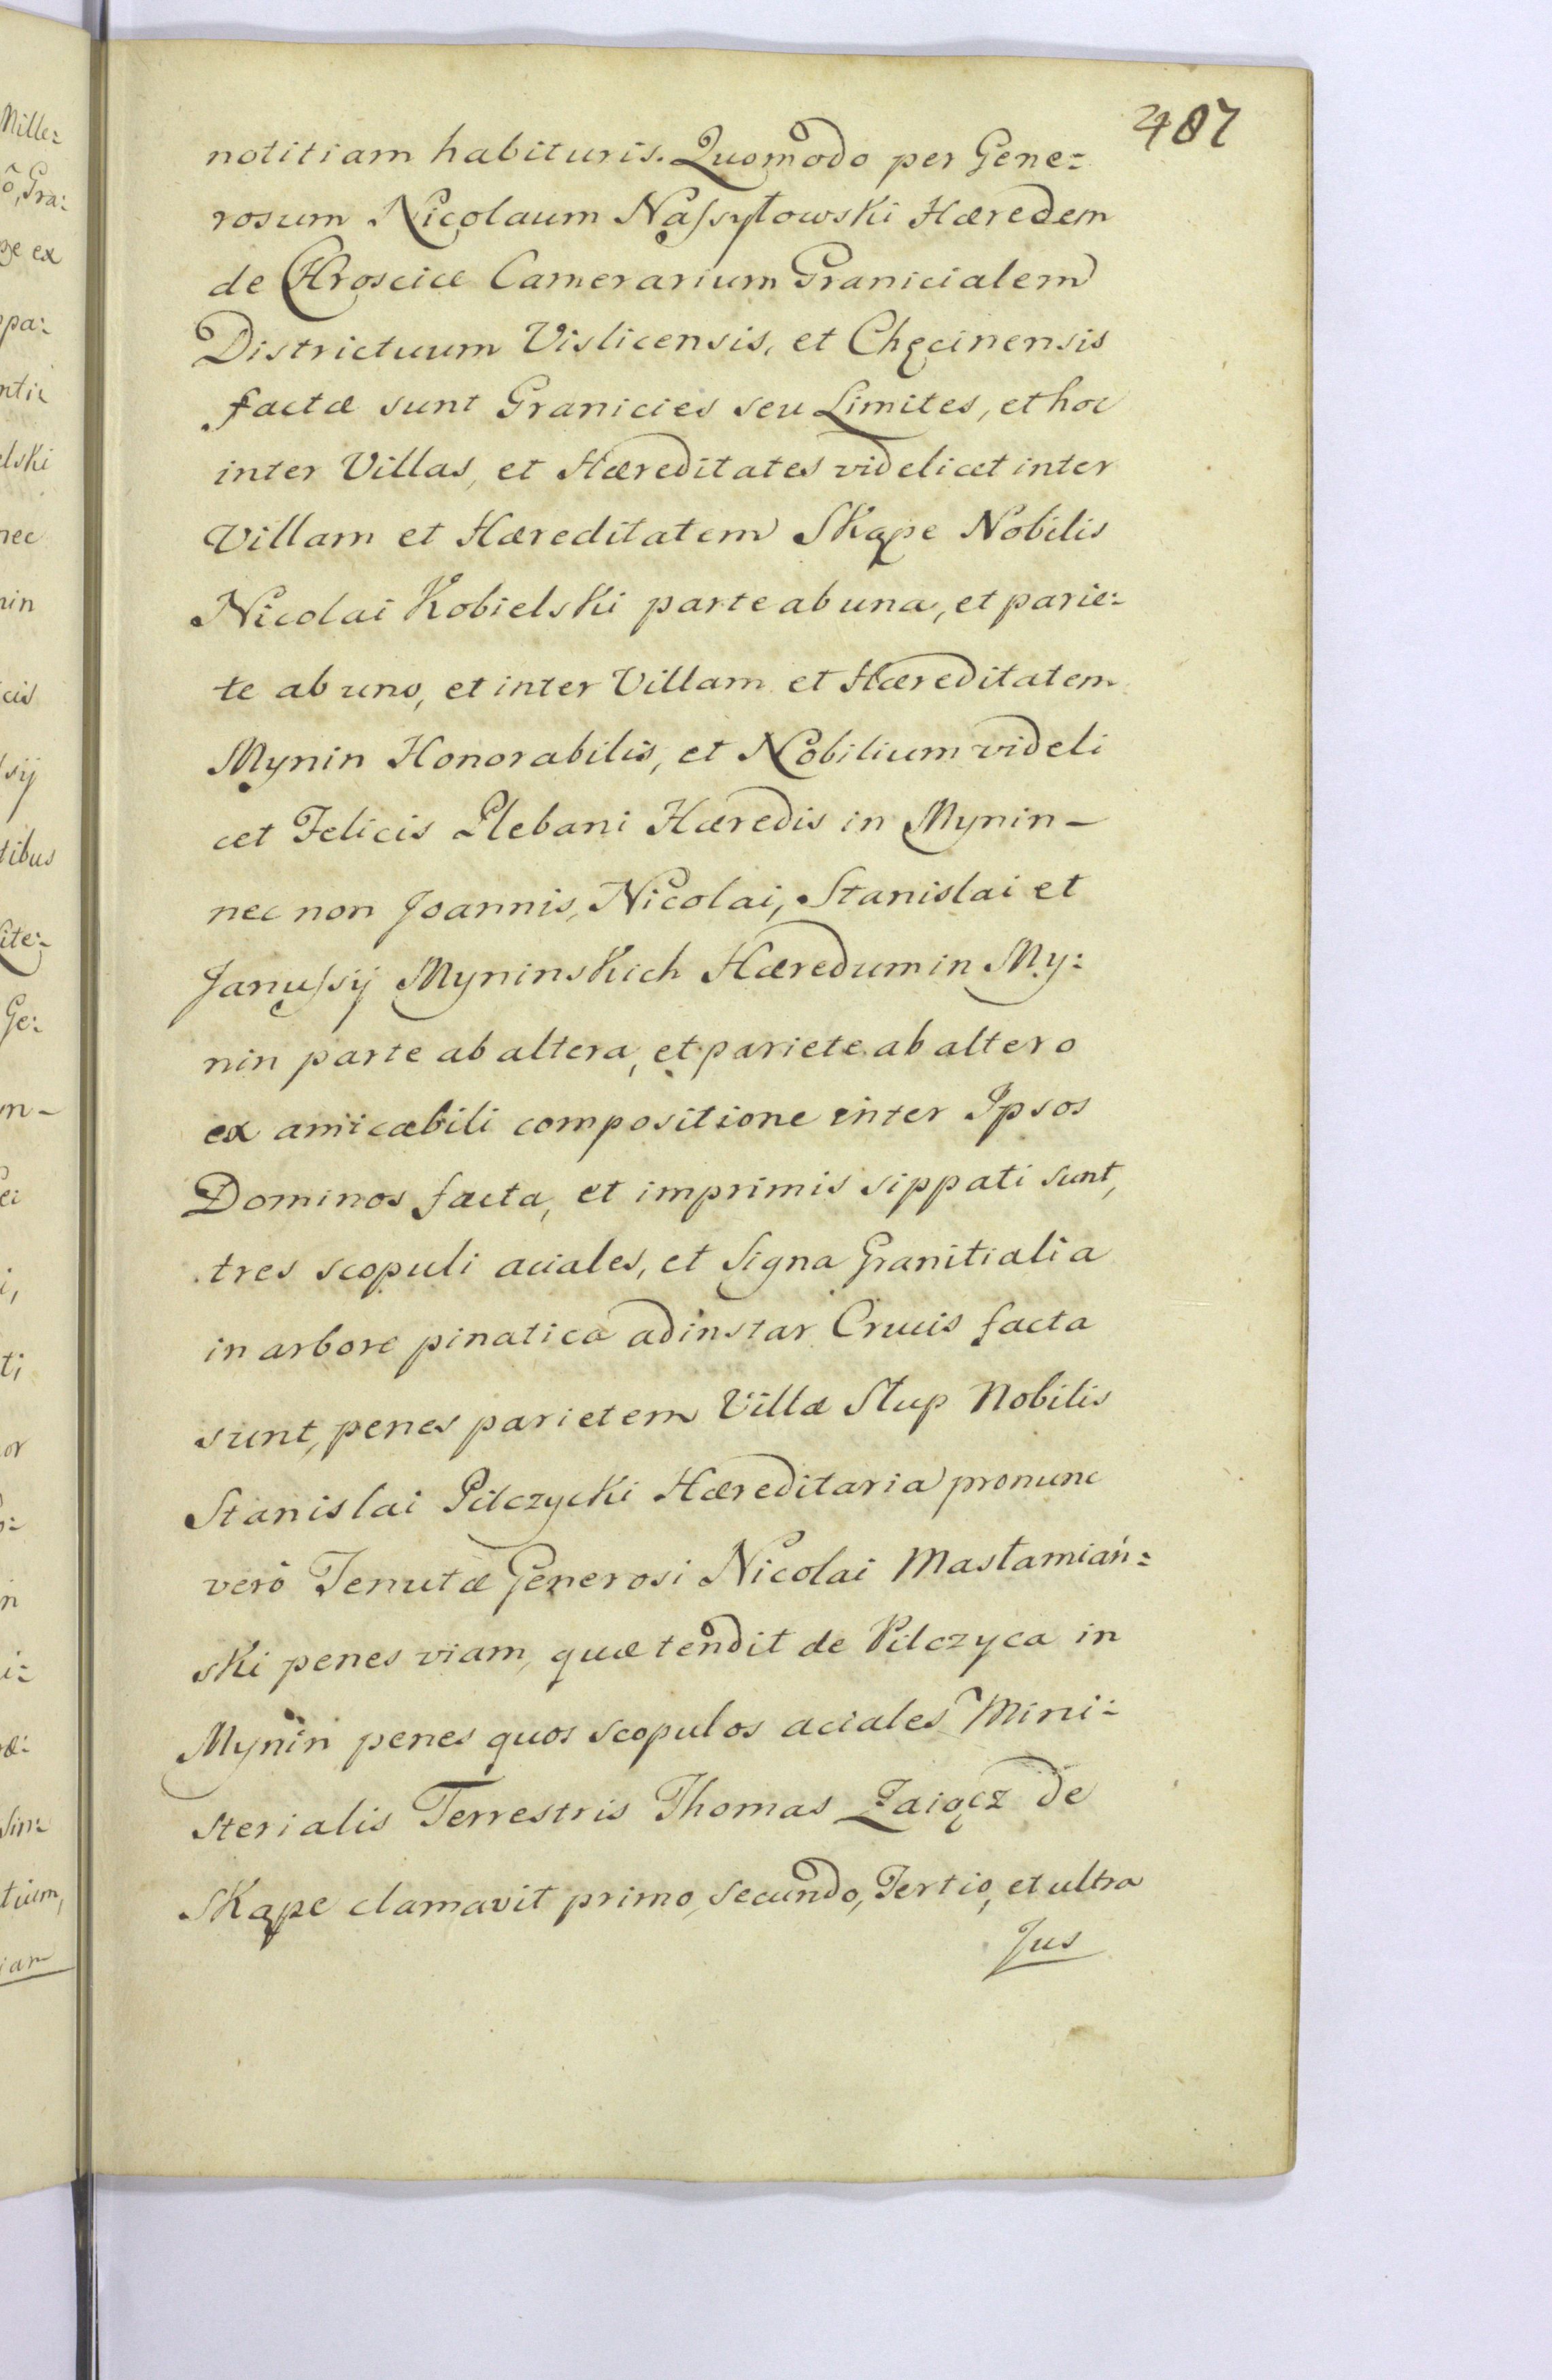 487
notitiam habituris. Quomodo per Gene=
rosum Nicolaum Nassyłowski Hæredem
de Chroscice Camerarium Granicialem
Districtuum Vislicensis, et Chęcinensis
factæ sunt Granicies seu Limites, et hoc
inter Villas, et Hæreditates videlicet inter
Villam et Hæreditatem Skąpe Nobilis
Nicolai Kobielski parte ab una, et parie=
te ab uno, et inter Villam et Hæreditatem
Mynin Honorabilis, et Nobilium videli
cet Felicis Plebani Hæredis in Mynin -
nec non Joannis, Nicolai, Stanislai et
Janussij Myninskich Hæredum in My=
nin parte ab altera, et pariete ab altero
ex amicabili compositione inter Ipsos
Dominos facta, et imprimis sippati sunt,
tres scopuli aciales, et Signa Granitialia
in arbore pinatica ad instar Crucis facta
sunt, penes parietem Villæ Słup Nobilis
Stanislai Pilczycki Hæreditaria pro nunc
verò Tenutæ Generosi Nicolai Masłamiań=
ski penes viam, quæ tendit de Pilczyca in
Mynin penes quos scopulos aciales Mini=
sterialis Terrestris Thomas Zaiącz de
Skąpe clamavit primo, secundo, Tertio, et ultra
Jus
Mille=
ô, Gra=
ge ex
pa=
ntii
elski
nec
nin
cis
ssij
tibus
Lite=
Ge=
m-
ti
or
n
i=
Sin=
tium,
iam